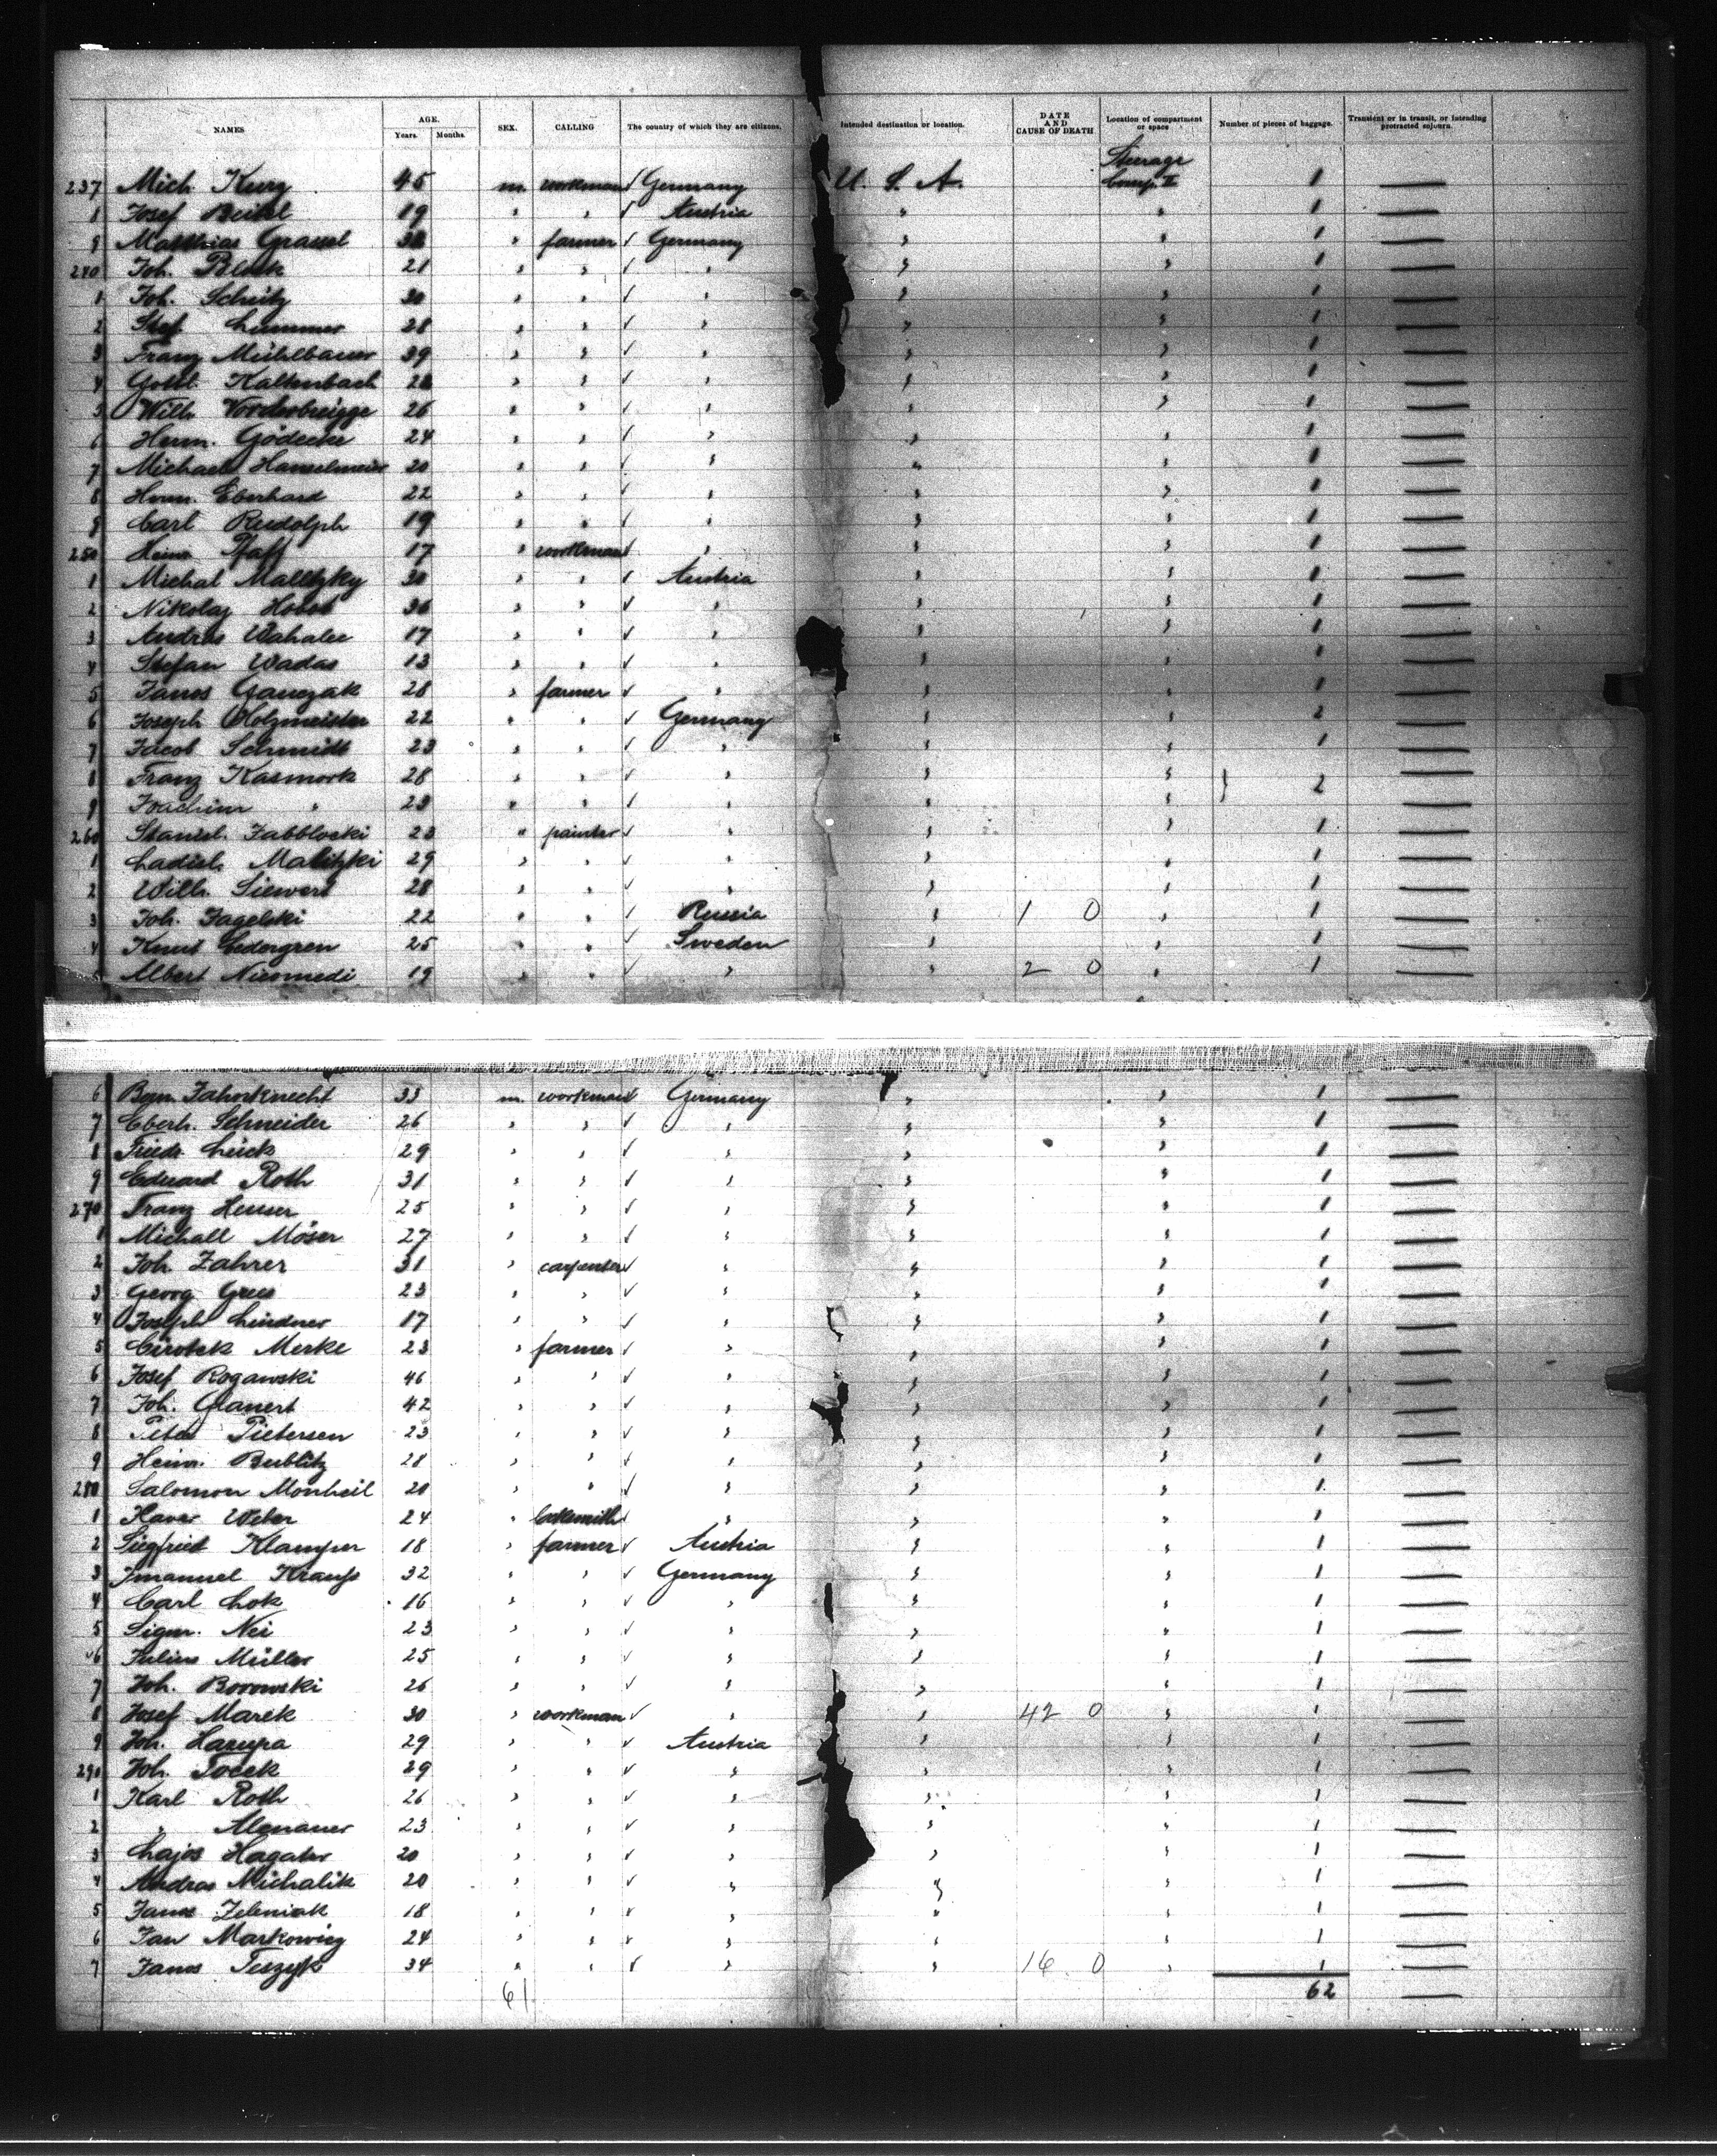 NAMES AGE. Years. Months. SEX. CALLING The country of which they are citizens. Intended destination or location. DATE AND CAUSE OF DEATH Location of compartment or space Number of pieces of baggage. Transient or in transit, or intending protracted sojourn.
Steerage
237 Mich. Kurz 45 m. workman ✓ Germany U. S. A. Comp. II 1 —
1 Josef 19 " " ✓ Austria " " 1 —
9 Matthias 38 " farmer ✓ Germany " " 1 —
240 Joh. 21 " " ✓ " " " 1 —
1 Joh. Schütz 30 " " ✓ " " " 1 —
2 Stef. 28 " " ✓ " " " 1 —
3 Franz Mühlbauer 39 " " ✓ " " " 1 —
4 Gottl. Kaltenbach 28 " " ✓ " " " 1 —
5 Wilh. Vorderbrügge 26 " " ✓ " " " 1 —
6 Herm. Gödecke 24 " " ✓ " " " 1 —
7 Michael Hanselmeier 20 " " ✓ " " " 1 —
8 Herm. Eberhard 22 " " ✓ " " " 1 —
9 Carl Rudolph 19 " " ✓ " " " 1 —
250 Heinr. Pfaff 17 " workman ✓ " " " 1 —
1 Michal Malitzky 30 " " ✓ Austria " " 1 —
2 Nikolaj 36 " " ✓ " " " 1 —
3 Andras Wahalec 17 " " ✓ " " " 1 —
4 Stefan Wadas 13 " " ✓ " " " 1 —
5 Janos Ganczak 28 " farmer ✓ " " " 1 —
6 Joseph Holzmeister 22 " " ✓ Germany " " 2 —
7 Jacob Schmidt 23 " " ✓ " " " 1 —
8 Franz Kasmork 28 " " ✓ " " " } 2 —
9 Joachim " 23 " " ✓ " " " —
260 Stanisl. Jabblocki 23 " painter ✓ " " " 1 —
1 Ladisl. Malitzki 29 " " ✓ " " " 1 —
2 Wilh. Siewert 28 " " ✓ " " " 1 —
3 Joh. Jagelski 22 " " ✓ Russia " 1 0 " 1 —
4 Knut Cedergren 25 " " ✓ Sweden " " 1 —
5 Albert Nicomedi 19 " " ✓ " " 2 0 " 1 —
6 Bern. Jahnsknecht 33 m. workman ✓ Germany " " 1 —
7 Eberh. Schneider 26 " " ✓ " " " 1 —
8 Friedr. Lück 29 " " ✓ " " " 1 —
9 Eduard Roth 31 " " ✓ " " " 1 —
270 Franz 25 " " ✓ " " " 1 —
1 Michall Möser 27 " " ✓ " " " 1 —
2 Joh. Zahrer 31 " carpenter ✓ " " " 1 —
3 Georg Grees 23 " " ✓ " " " 1 —
4 Joseph Lindner 17 " " ✓ " " " 1 —
5 Merke 23 " farmer ✓ " " " 1 —
6 Josef Rogawski 46 " " ✓ " " " 1 —
7 Joh. Glanert 42 " " ✓ " " " 1 —
8 Peter Pietersen 23 " " ✓ " " " 1 —
9 Heinr. Bublitz 28 " " ✓ " " " 1 —
280 Salomon Monheil 20 " " ✓ " " " 1 —
1 Xaver Weber 24 " locksmith ✓ " " " 1 —
2 Siegfried Klamper 18 " farmer ✓ Austria " " 1 —
3 Imanuel Krauss 32 " " ✓ Germany " " 1 —
4 Carl Lok 16 " " ✓ " " " 1 —
5 Sigm. Nei 23 " " ✓ " " " 1 —
6 Julius Müller 25 " " ✓ " " " 1 —
7 Joh. Borowski 26 " " ✓ " " " 1 —
8 Josef Marek 30 " workman ✓ " " 42 0 " 1 —
9 Joh. Hasupa 29 " " ✓ Austria " " 1 —
290 Joh. Tocek 29 " " ✓ " " " 1 —
1 Karl Roth 26 " " ✓ " " " 1 —
2 " Almaner 23 " " ✓ " " " 1 —
3 Lajos Hagater 20 " " ✓ " " " 1 —
4 Andras Michalik 20 " " ✓ " " " 1 —
5 Janos Zeleniak 18 " " ✓ " " " 1 —
6 Jan Markowicz 24 " " ✓ " " " 1 —
7 Janos Tuszyk 34 " " ✓ " " 16 0 " 1 —
61 62 —